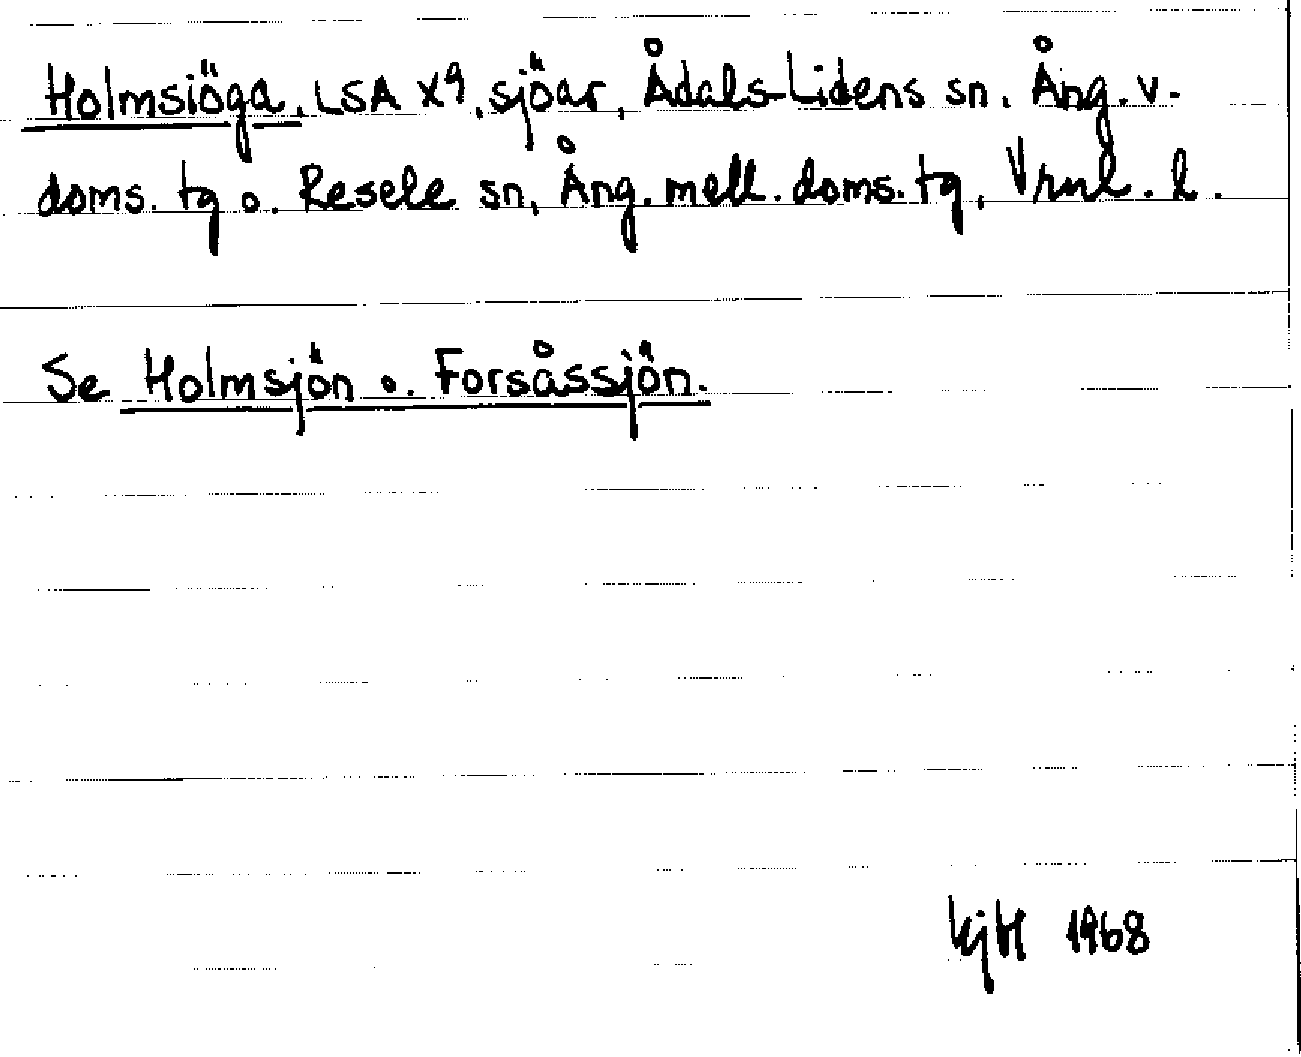 Holmsiöga, LSA X9, sjöar, Ådals-Lidens sn. Ång. v.
doms. tg o. Resele sn, Ång. mell. doms. tg, Vrnl. l.
Se Holmsjön o. Forsåssjön.
KjH 1968